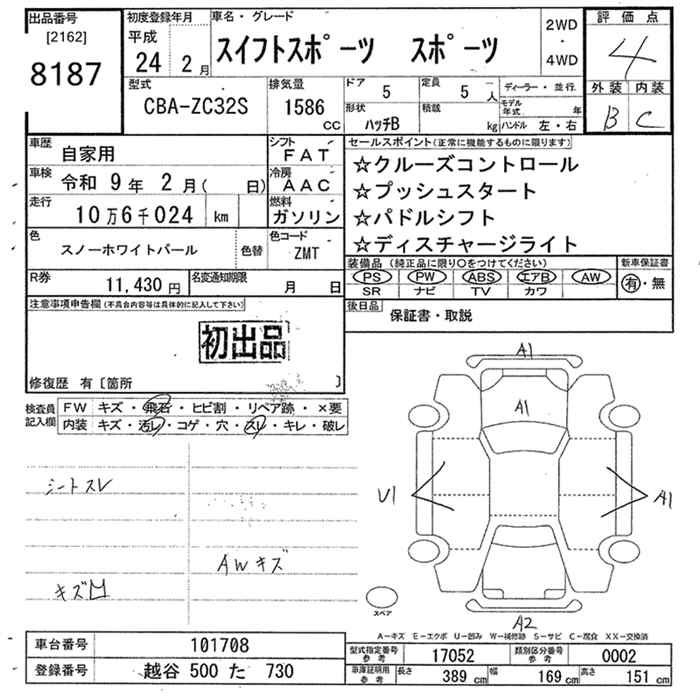 出品番号
[2162]
8187
初度登録年月
平成
24 2月
車名・グレード
スイフトスポーツ スポーツ
2WD
・
4WD
評価点
4
外装 内装
B C
型式
CBA-ZC32S
排気量
1586
CC
ドア
5
定員
5 人
形状
ハッチB
積載
kg
ディーラー・並行
モデル年式 年
ハンドル 左・右
車歴
自家用
シフト
FAT
車検
令和 9年 2月( 日)
冷房
AAC
走行
10万6千024 km
燃料
ガソリン
色
スノーホワイトパール
色替
色コード
ZMT
セールスポイント(正常に機能するものに限ります)
☆クルーズコントロール
☆プッシュスタート
☆パドルシフト
☆ディスチャージライト
装備品 (純正品に限り○をつけてください)
新車保証書
PS PW ABS エアB AW
SR ナビ TV カワ
有・無
R券
11,430 円
名変通知期限
月 日
後日品
保証書・取説
注意事項申告欄(不具合内容等は具体的に記入して下さい)
初出品
修復歴 有〔箇所 〕
検査員記入欄
FW キズ・飛石・ヒビ割・リペア跡・×要
内装 キズ・汚レ・コゲ・穴・スレ・キレ・破レ
シートスレ
AWキズ
A1
A1
U1
A1
A2
スペア
A-キズ E-エクボ U-凹み W-補修跡 S-サビ C-腐食 XX-交換済
車台番号
101708
登録番号
越谷 500 た 730
型式指定番号
参考
17052
類別区分番号
参考
0002
車庫証明用
参考
長さ
389 cm
幅
169 cm
高さ
151 cm